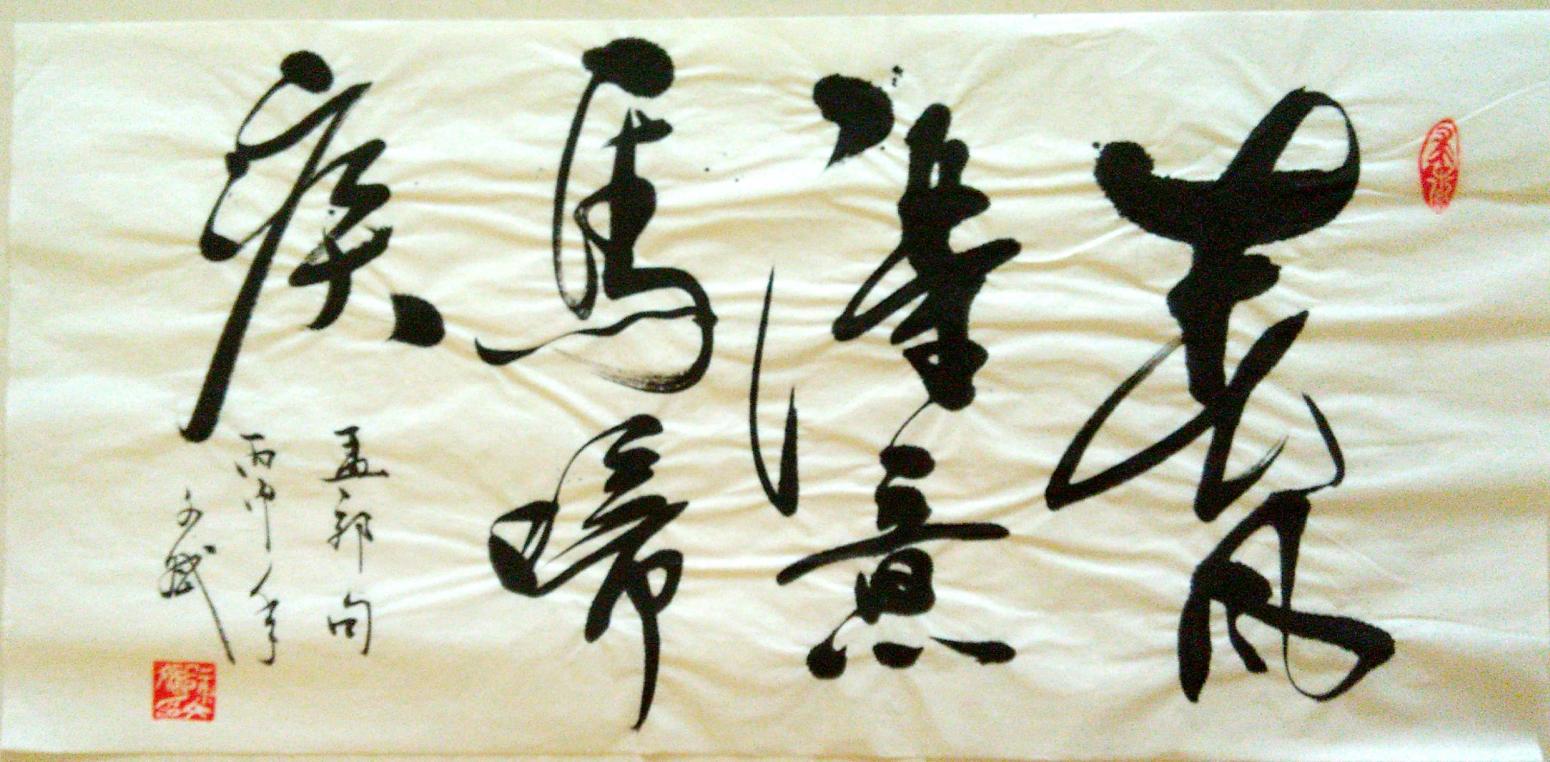 春風
得意
馬蹄
疾
孟郊句
丙申年